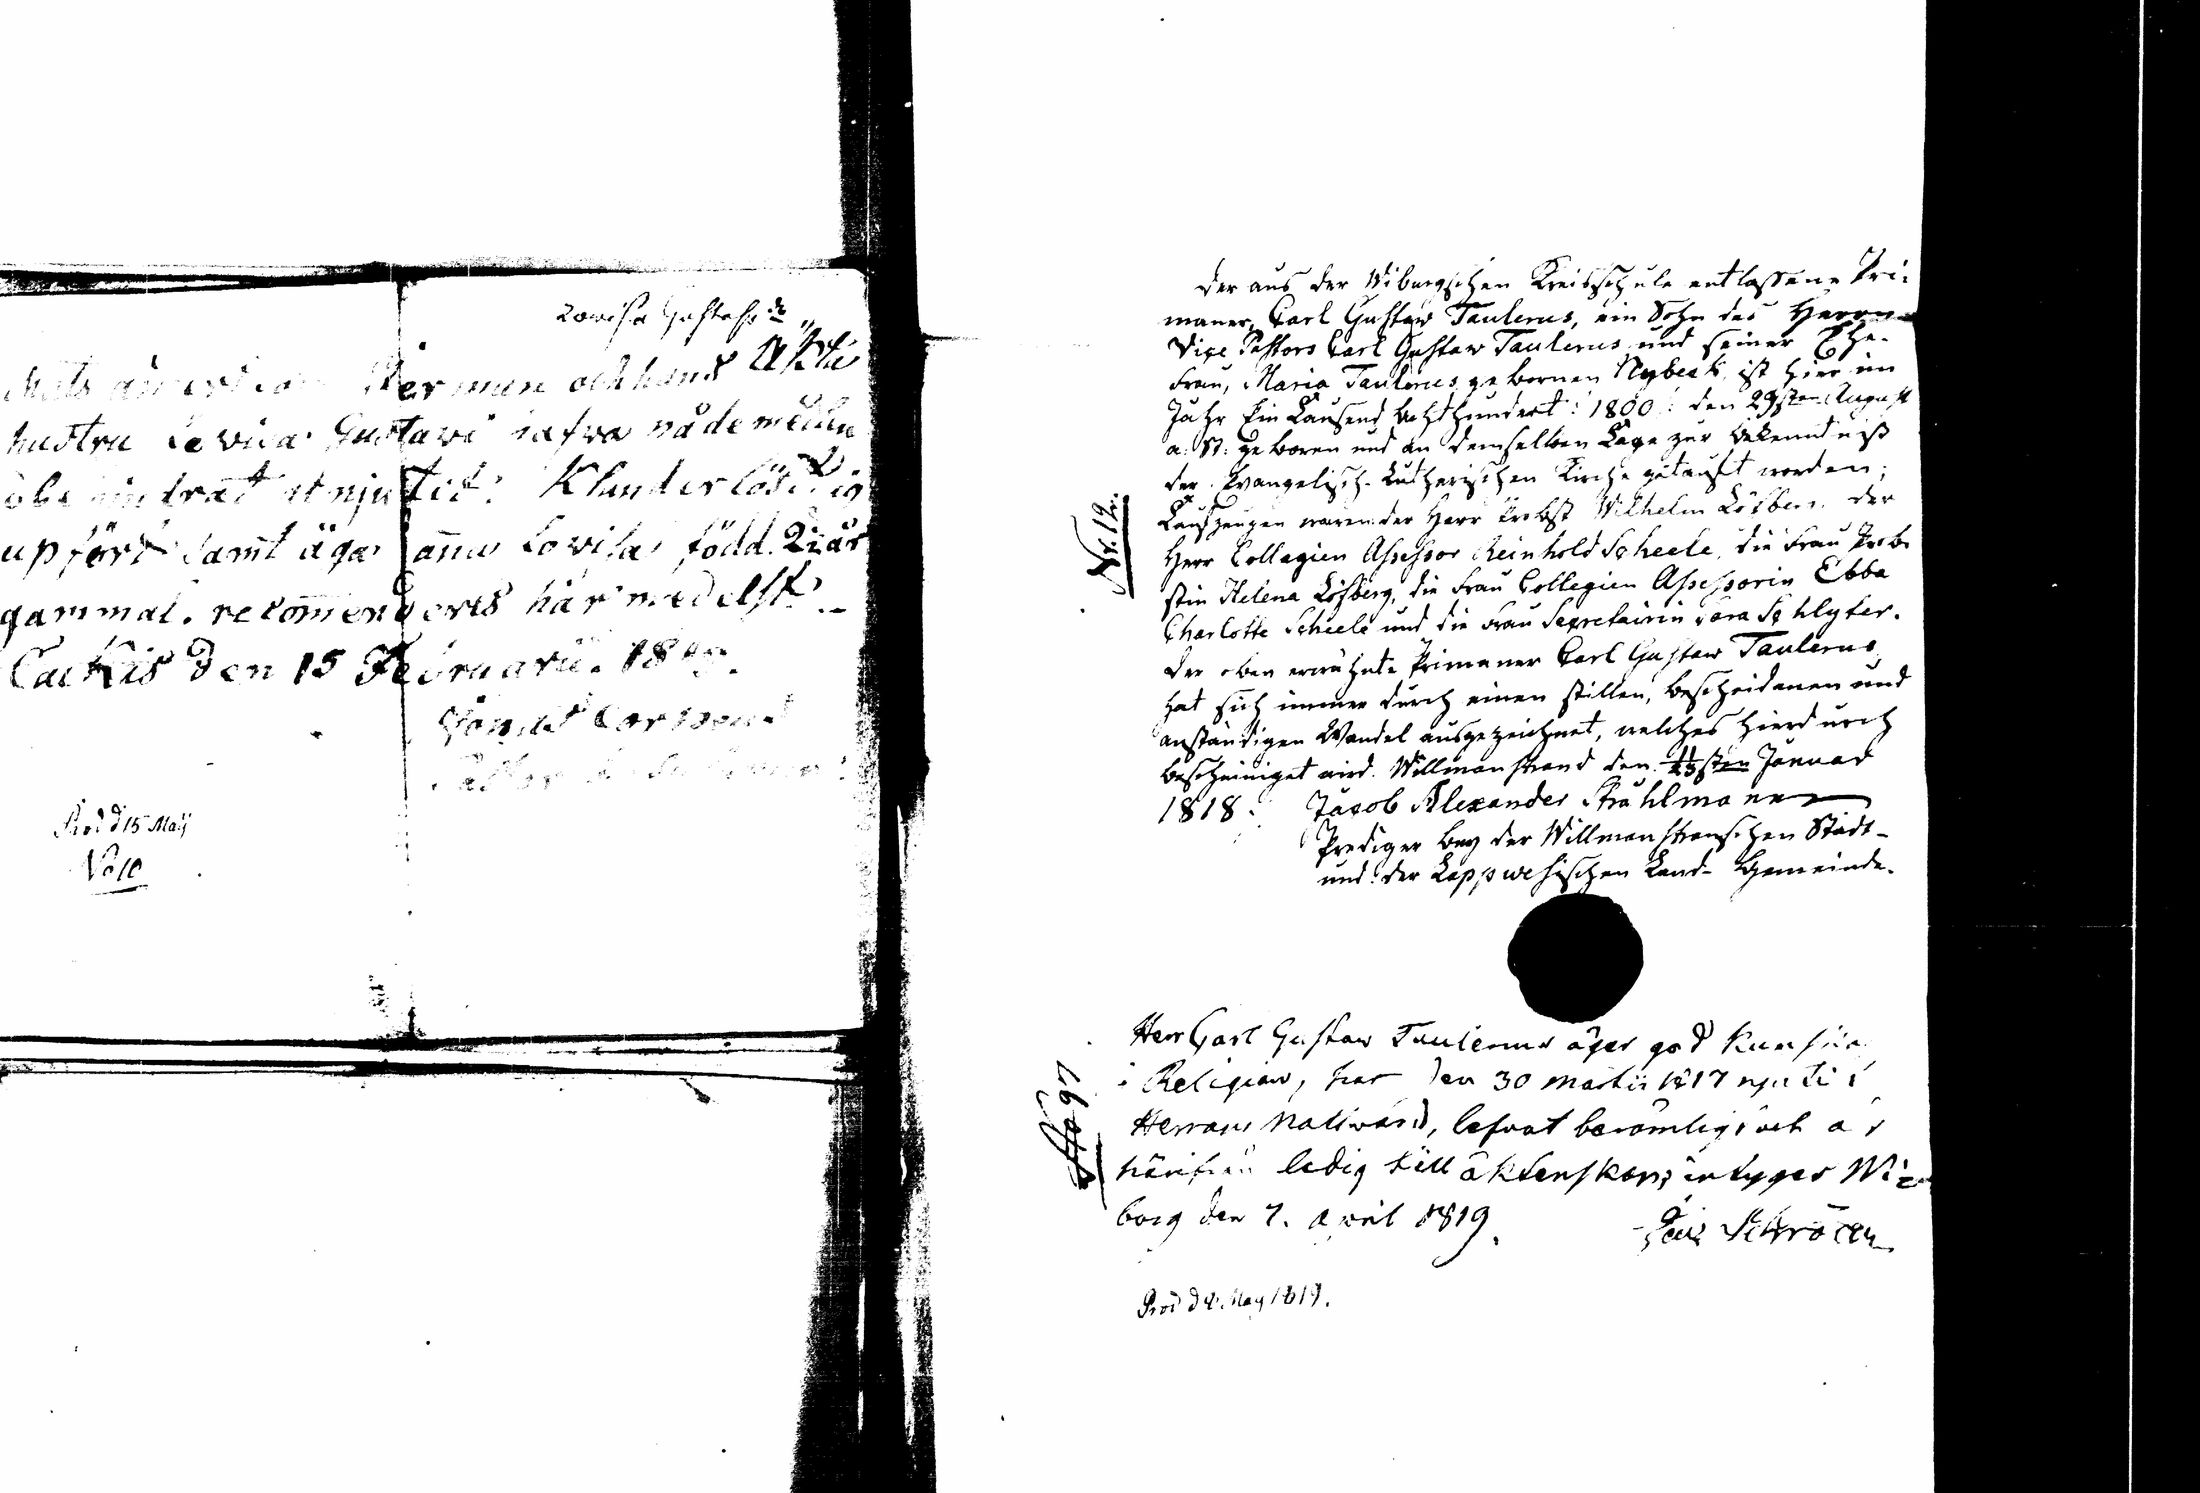 Lowisa Gustafs dr
Mats andersson Perman och hans Ächta
hustru Lovisa Gustavi hafva nådemedlen
obehindrat åtnjutit: Klanderlöst sig
upfört samt äga anna Lovisa född. 2½ år
gammal. recom̄enderas här medelst.
Cackis Den 15 Februarii. 18
Jonas
Prod d 15 Maij
No 10
Nr. 12.
Der aus der Wiburgschen Kreisschule entlassene Pri-
maner, Carl Gustaw Taulerus, ein Sohn des Herrn
Vice Pastors Carl Gustaw Taulerus und seiner Ehe-
frau, Maria Taulerus gebornen Nybeck, ist hier im
Jahr Ein Tausend Achthundert: 1800: den 29sten August
a. St: geboren und an demselben Tage zur Bekenntniß
der Evangelisch-Lutherischen Kirche getauft worden;
Taufzeugen waren: der Herr Probst Wilhelm Löfberg, der
Herr Collegien Assessor Reinhold Scheele, die Frau Prob-
stin Helena Löfberg, die Frau Collegien Assessorin Ebba
Charlotte Scheele und die Frau Secretairin Sara Schlyter.
Der oben erwähnte Primaner Carl Gustaw Taulerus
hat sich immer durch einen stillen, bescheidenen und
anständigen Wandel ausgezeichnet, welches hierdurch
bescheiniget wird. Willmanstrand den sten Januar
1818. Jacob Alexander Strahlmann
Prediger bey der Willmanstranschen Stadt-
und der Lappwesischen Land-Gemeinde.
No 97
Herr Carl Gustaw Taulerus äger god Kunskap
i Religion, har den 30 martii 1817 njutit
Herrans Nattward, lefvat berömlig och är
härifrån ledig till äktenskap; intygas Wi-
borg den 7. April 1819.
Prod d 8 May 1819.